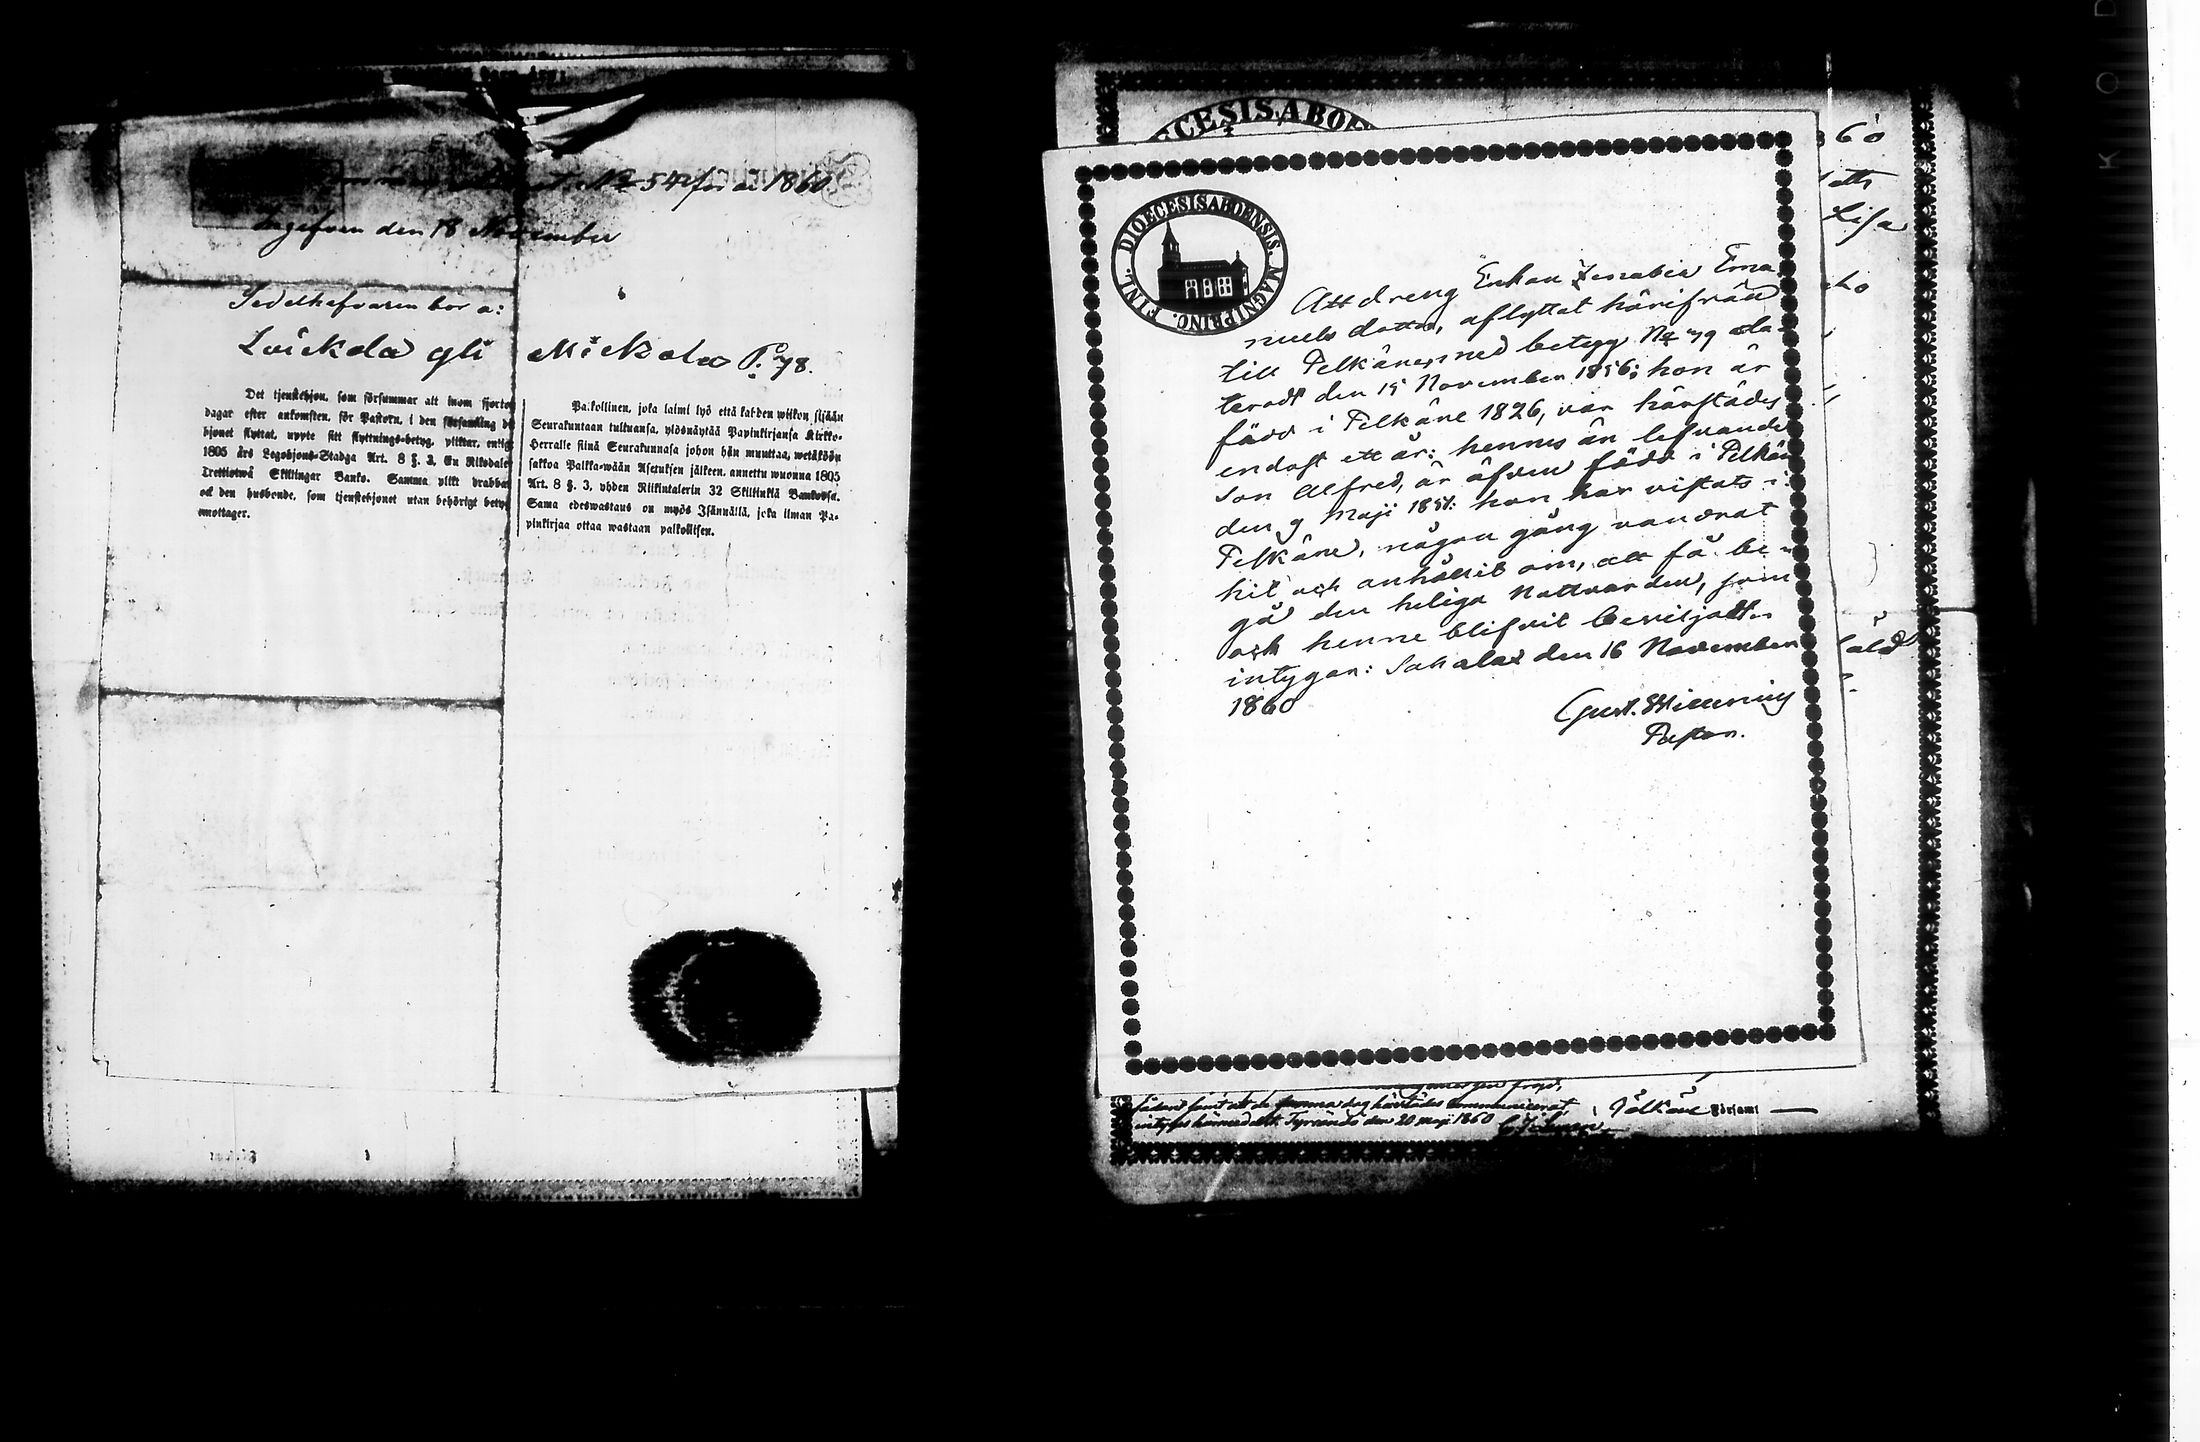 No 542 för år 1860
Ingifven den 18 November
Sedelhafvaren bor a:
Luikala gli Mickola P. 78.
Det tjenstehjon, som försummar att inom fjorton
dagar efter ankomsten, för Pastorn, i den församling
hjonet flyttat, uppte sitt flyttnings-betyg, pliktar, enligt
1805 års Legohjons-Stadga Art. 8 §. 3, En Riksdaler
Trettiotwå Skillingar Banko. Samma plikt drabbar
ock den husbonde, som tjenstehjonet utan behörigt betyg
emottager.
Palkollinen, joka laimi lyö että kahden wiikon sisään
Seurakuntaan tultuansa, ylösnäytää Papinkirjansa Kirkko-
Herralle siinä Seurakunnasa johon hän muuttaa, wetäköön
sakkoa Palkka-wään Asetuksen jälkeen, annettu wuonna 1805
Art. 8 §. 3, yhden Riikintalerin 32 Skillinkiä Bankossa.
Sama edeswastaus on myös Isännällä, joka ilman Pa-
pinkirjaa ottaa wastaan palkollisen.
ECESIS ABOE
DIOECESIS ABOENSIS. MAGNI PRINC. FINL.
Att dreng Enkan Zenobia Ema
nuels dotter, aflyttat härifrån
till Pelkäne, med betyg No 79 da-
teradt den 15 November 1856; hon är
född i Pelkäne 1826, var härstädes
endast ett år: hennes än lefvande
son Alfred, är äfven född i Pelkän
den 9 Maji 1851: hon har vistats i
Pelkäne, någon gång vandrat
hit och anhållit om, att få be-
gå den heliga Nattvarden, som
ock henne blifvit beviljadt
intygar: Sahalax den 16 November
1860
Gust.
Pastor.
60
Lisa
samma dag härstädes communicerat,
intygas härmedelst. Tyrvändö den 20 maji 1860
Pälkäne